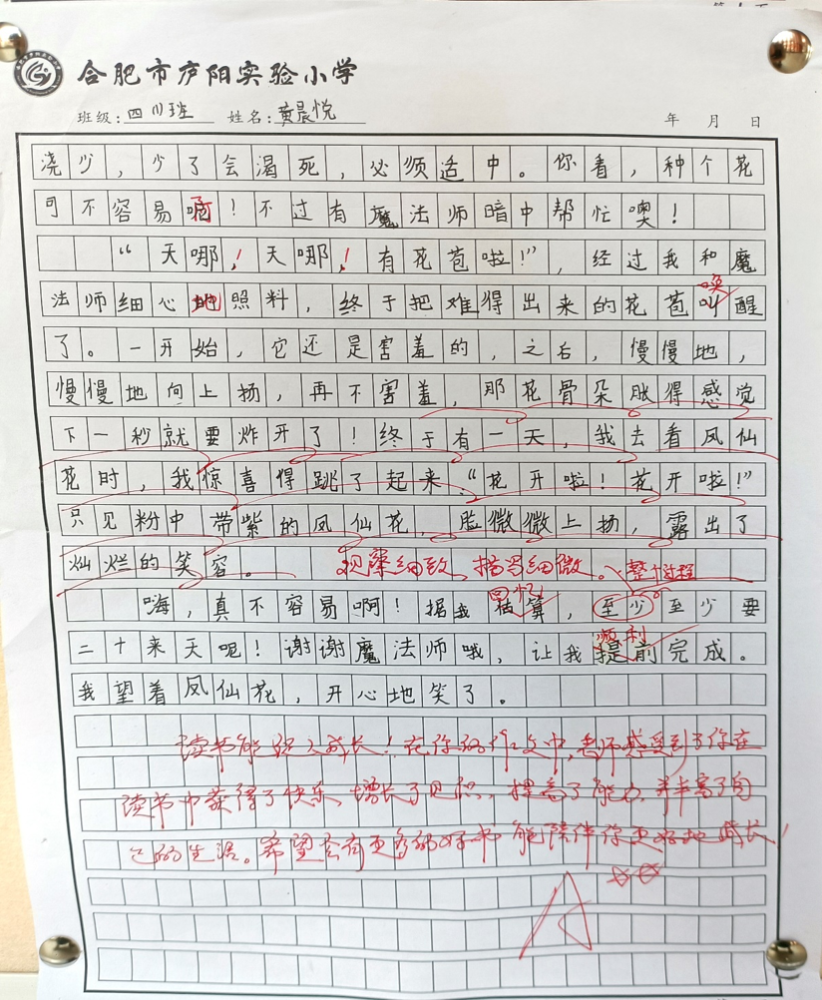 合肥市庐阳实验小学
班级：四(1)班 姓名：黄晨悦 年 月 日
浇少，少了会渴死，必须适中。你看，种个花
可不容易啊！不过有魔法师暗中帮忙噢！
“天哪！天哪！有花苞啦！”，经过我和魔
唤
法师细心地照料，终于把难得出来的花苞叫醒
了。一开始，它还是害羞的，之后，慢慢地，
慢慢地向上扬，再不害羞，那花骨朵胀得感觉
下一秒就要炸开了！终于有一天，我去看凤仙
花时，我惊喜得跳了起来“花开啦！花开啦！”
只见粉中带紫的凤仙花，脸微微上扬，露出了
灿烂的笑容。 观察细致，描写细微。整个过程
回忆
嗨，真不容易啊！据我估算，至少至少要
顺利
二十来天呢！谢谢魔法师哦，让我提前完成。
我望着凤仙花，开心地笑了。
读书能助人成长！在你的作文中，老师感受到了你在
读书中获得了快乐，增长了见识，提高了能力，并丰富了自
己的生活。希望会有更多的好书能陪伴你更好地成长！
A